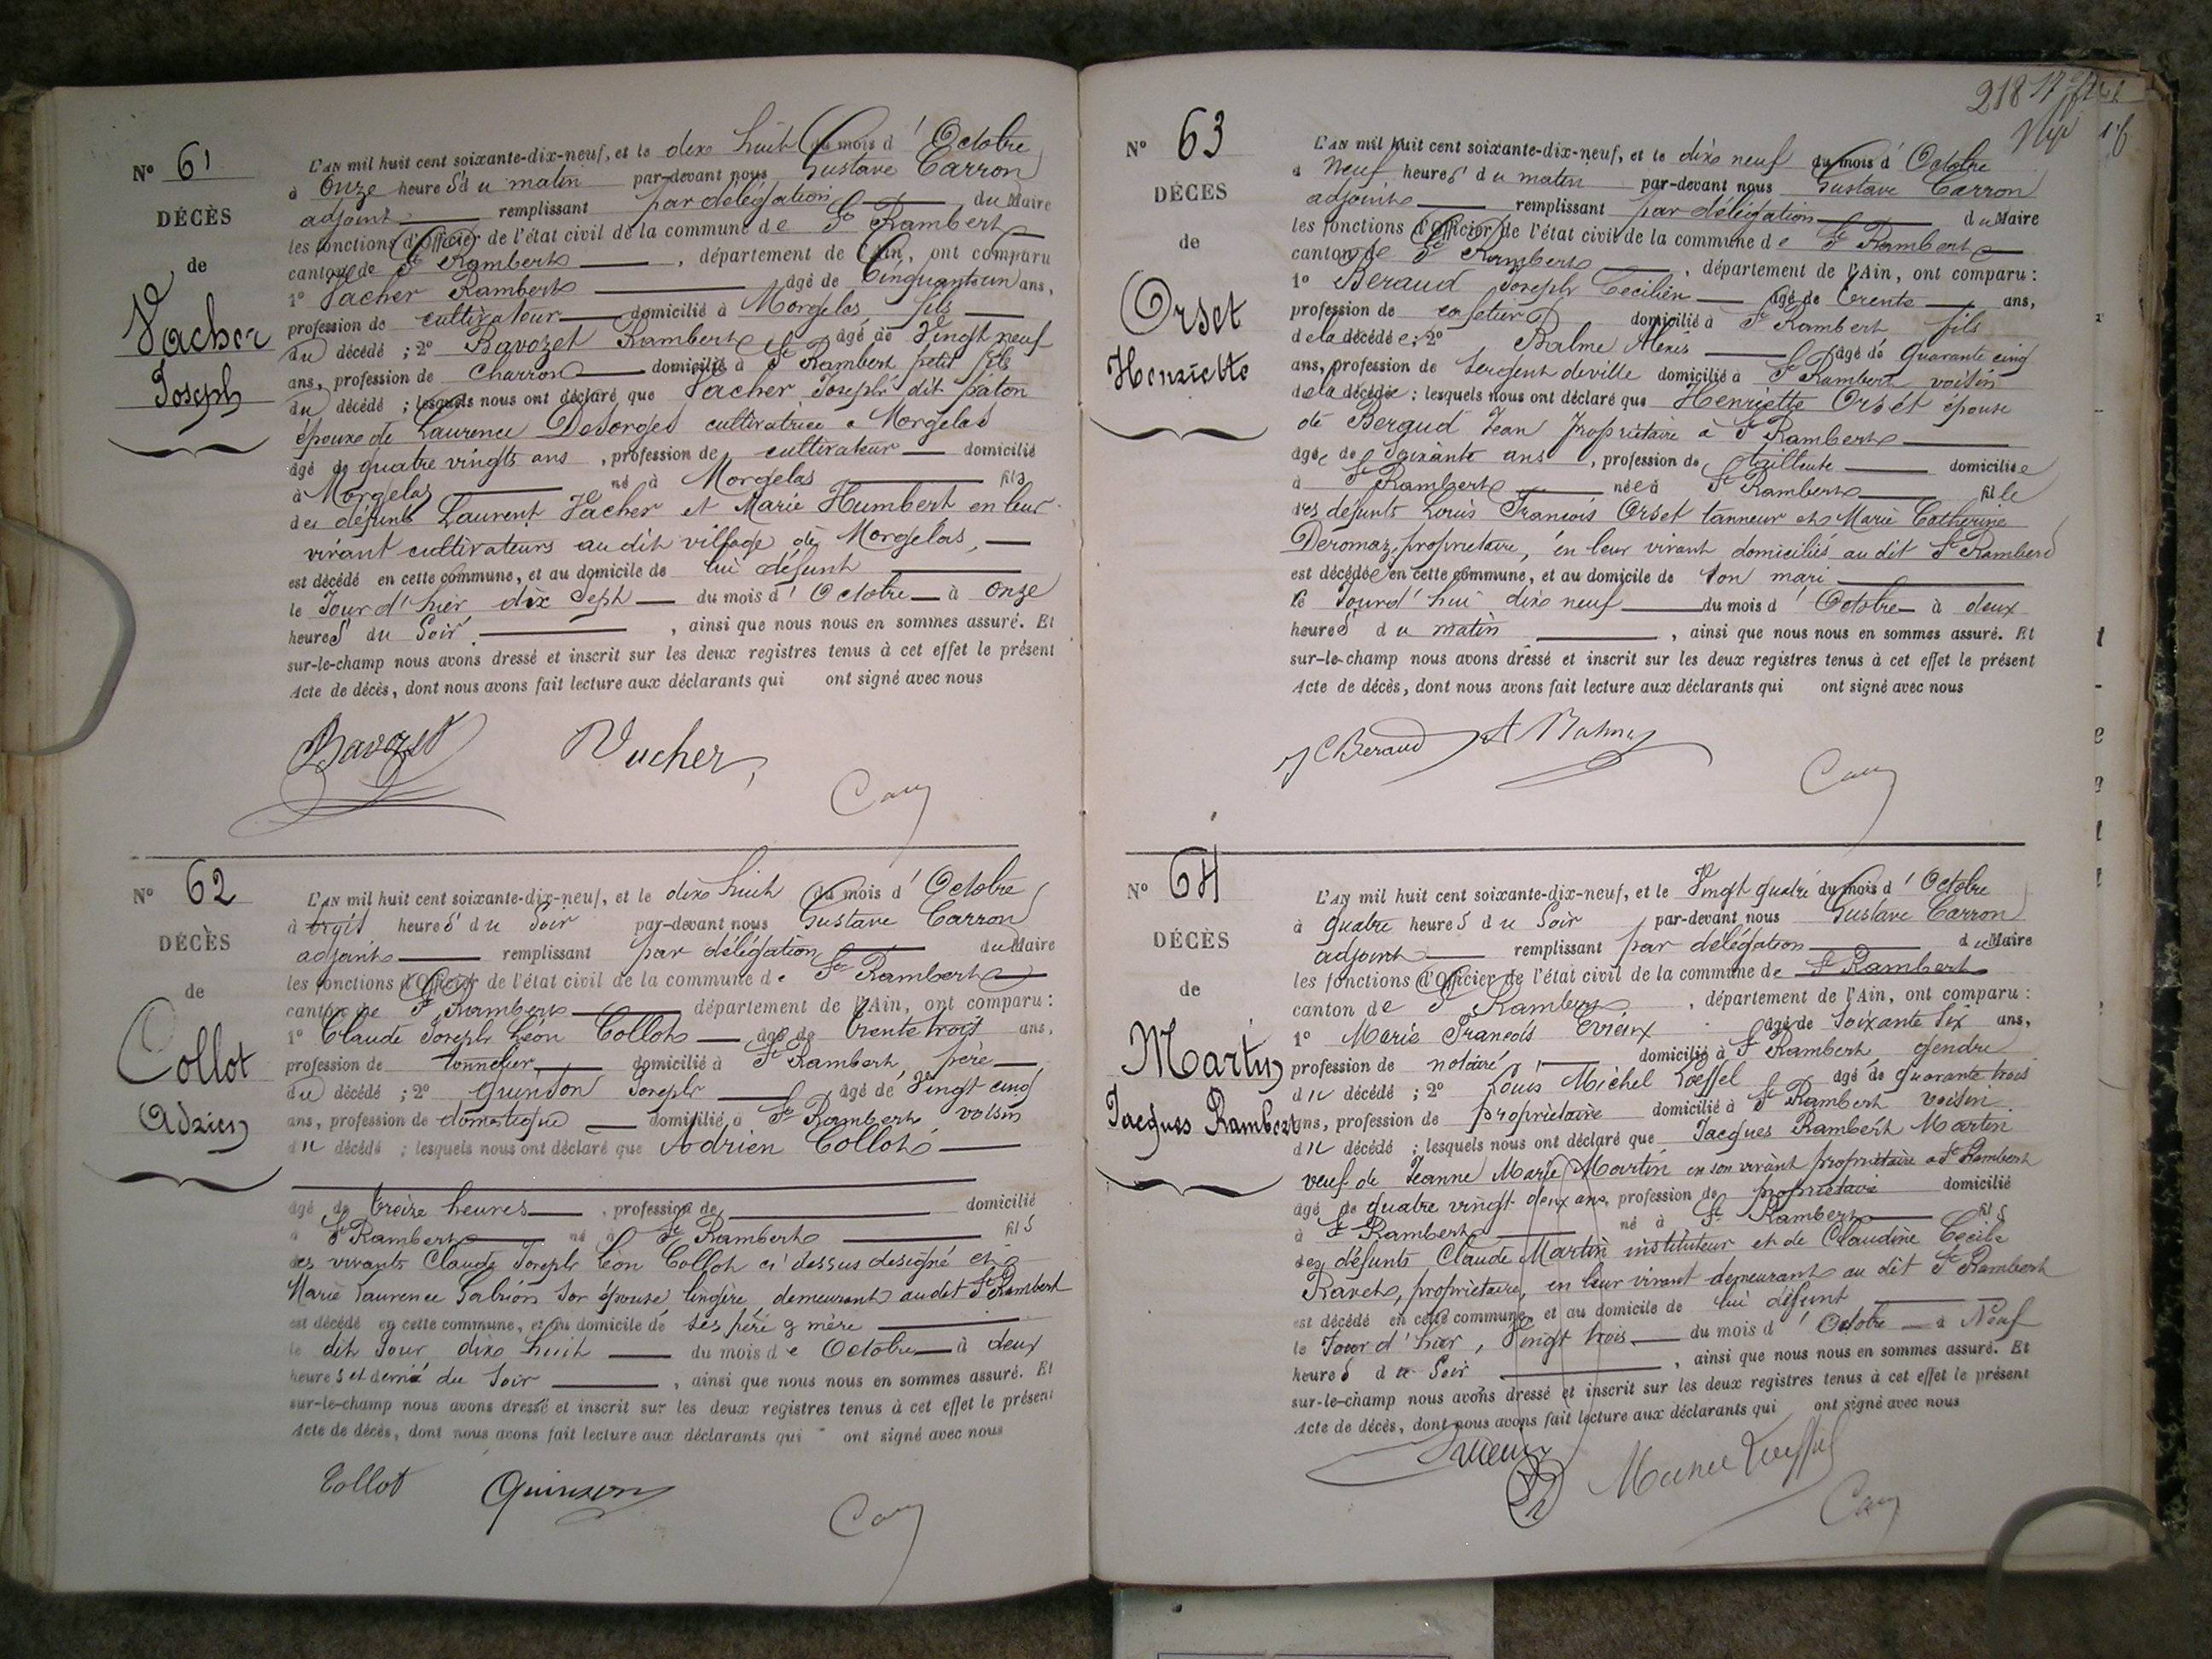 N° 61
DÉCÈS
de
Vacher
Joseph
L'AN mil huit cent soixante-dix-neuf, et le dix huit du mois d' Octobre
à Onze heures du matin par-devant nous Gustave Carron
adjoint remplissant par délégation du Maire
les fonctions d'Officier de l'état civil de la commune de St Rambert
canton de St Rambert , département de l'Ain, ont comparu
1° Vacher Rambert âgé de Cinquante un ans,
profession de cultivateur domicilié à Morgelas, fils
du décédé ; 2° Bavozet Rambert âgé de Vingt neuf
ans, profession de Charron domicilié à St Rambert petit fils
du décédé ; lesquels nous ont déclaré que Vacher Joseph dit paton
époux de Laurence Desorges cultivatrice a Morgelas
âgé de quatre vingts ans , profession de cultivateur domicilié
à Morgelas né à Morgelas fils
des défunts Laurent Vacher et Marie Humbert en leur
vivant cultivateurs au dit village de Morgelas,
est décédé en cette commune, et au domicile de lui défunt
le Jour d'hier dix Sept du mois d' Octobre à onze
heures du Soir , ainsi que nous nous en sommes assuré. Et
sur-le-champ nous avons dressé et inscrit sur les deux registres tenus à cet effet le présent
Acte de décès, dont nous avons fait lecture aux déclarants qui ont signé avec nous
Bavozet Vacher
N° 62
DÉCÈS
de
Collot
Adrien
L'AN mil huit cent soixante-dix-neuf, et le dix huit du mois d' Octobre
à trois heures du Soir par-devant nous Gustave Carron
adjoint remplissant par délégation du Maire
les fonctions d'Officier de l'état civil de la commune de St Rambert
canton de St Rambert département de l'Ain, ont comparu :
1° Claude Joseph Léon Collot âgé de trente trois ans,
profession de tonnelier, domicilié à St Rambert, père
du décédé ; 2° Quinson Joseph âgé de Vingt cinq
ans, profession de domestique domicilié à St Rambert voisin
du décédé ; lesquels nous ont déclaré que Adrien Collot
âgé de treize heures , profession de domicilié
à St Rambert né à St Rambert fils
des vivants Claude Joseph Léon Collot ci dessus désigné et
Marie Laurence Gabrion Son épouse lingère, demeurant audit St Rambert
est décédé en cette commune, et au domicile de ses père & mère
le dit Jour dix huit du mois de Octobre à deux
heures et demie du Soir , ainsi que nous nous en sommes assuré. Et
sur-le-champ nous avons dressé et inscrit sur les deux registres tenus à cet effet le présent
Acte de décès, dont nous avons fait lecture aux déclarants qui ont signé avec nous
Collot Quinson
218
N° 63
DÉCÈS
de
Orset
Henriette
L'AN mil huit cent soixante-dix-neuf, et le dix neuf du mois d' Octobre
à Neuf heures du matin par-devant nous Gustave Carron
adjoint remplissant par délégation du Maire
les fonctions d'Officier de l'état civil de la commune de St Rambert
canton de St Rambert , département de l'Ain, ont comparu :
1° Beraud Joseph Cecilien âgé de trente ans,
profession de cafetier domicilié à St Rambert fils
de la décédée ; 2° Balme Alexis âgé de quarante cinq
ans, profession de Sergent de ville domicilié à St Rambert voisin
de la décédée ; lesquels nous ont déclaré que Henriette Orset épouse
de Beraud Jean propriétaire à St Rambert
âgée de Soixante ans , profession de tailleuse domiciliée
à St Rambert née à St Rambert fille
des défunts Louis François Orset tanneur et Marie Catherine
Deromaz, propriétaire, en leur vivant domiciliés au dit St Rambert
est décédée en cette commune, et au domicile de son mari
le Jourd'hui dix neuf du mois d' Octobre à deux
heures du matin , ainsi que nous nous en sommes assuré. Et
sur-le-champ nous avons dressé et inscrit sur les deux registres tenus à cet effet le présent
Acte de décès, dont nous avons fait lecture aux déclarants qui ont signé avec nous
J C Beraud
N° 64
DÉCÈS
de
Martin
Jacques Rambert
L'AN mil huit cent soixante-dix-neuf, et le Vingt quatre du mois d' Octobre
à quatre heures du Soir par-devant nous Gustave Carron
adjoint remplissant par délégation du Maire
les fonctions d'Officier de l'état civil de la commune de St Rambert
canton de St Rambert , département de l'Ain, ont comparu :
1° Marie François âgé de Soixante Six ans,
profession de notaire domicilié à St Rambert, gendre
du décédé ; 2° Louis Michel Loeffel âgé de quarante trois
ans, profession de propriétaire domicilié à St Rambert voisin
du décédé ; lesquels nous ont déclaré que Jacques Rambert Martin
veuf de Jeanne Marie Martin en son vivant propriétaire a St Rambert
âgé de quatre vingt deux ans, profession de propriétaire domicilié
à St Rambert né à St Rambert fils
des défunts Claude Martin instituteur et de Claudine Cécile
Ravet, propriétaire, en leur vivant demeurant au dit St Rambert
est décédé en cette commune, et au domicile de lui défunt
le Jour d'hier, Vingt trois du mois d' Octobre à Neuf
heures du Soir , ainsi que nous nous en sommes assuré. Et
sur-le-champ nous avons dressé et inscrit sur les deux registres tenus à cet effet le présent
Acte de décès, dont nous avons fait lecture aux déclarants qui ont signé avec nous